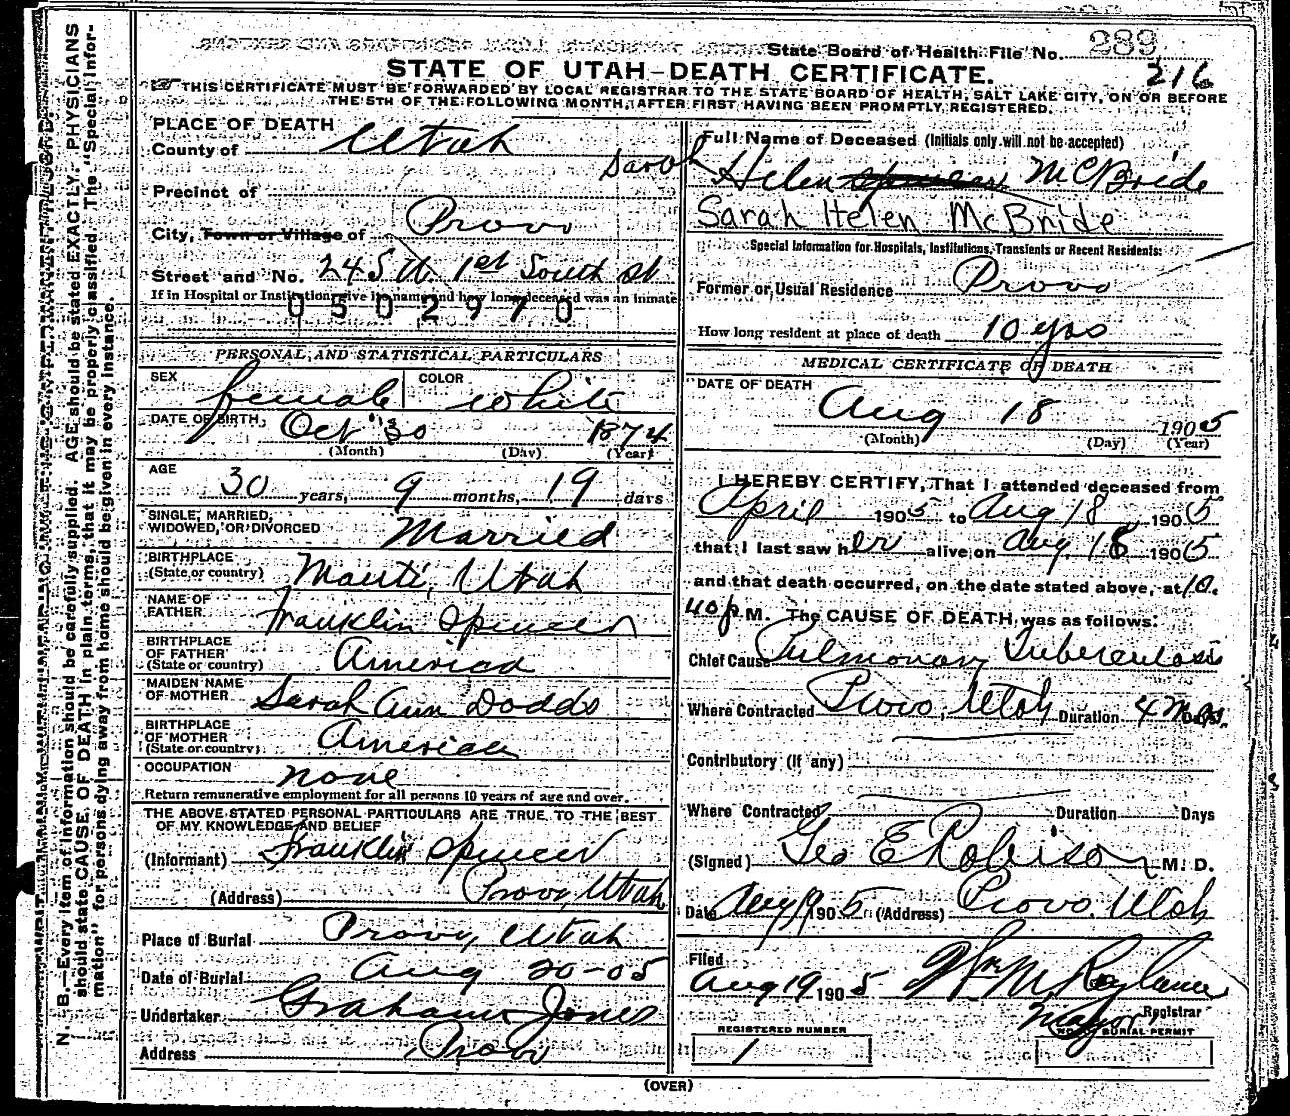 State Board of Health File No. 289
216
STATE OF UTAH—DEATH CERTIFICATE.
THIS CERTIFICATE MUST BE FORWARDED BY LOCAL REGISTRAR TO THE STATE BOARD OF HEALTH, SALT LAKE CITY, ON OR BEFORE
THE 5TH OF THE FOLLOWING MONTH, AFTER FIRST HAVING BEEN PROMPTLY REGISTERED.
N. B.—Every item of information should be carefully supplied. AGE should be stated EXACTLY. PHYSICIANS
should state CAUSE OF DEATH in plain terms, that it may be properly classified. The "Special Infor-
mation" for persons dying away from home should be given in every instance.
PLACE OF DEATH
County of Utah
Precinct of
City, Town or Village of Provo
Street and No. 245 W. 1st South St
If in Hospital or Institution, give its name and how long deceased was an inmate
0502970
PERSONAL AND STATISTICAL PARTICULARS
SEX female COLOR white
DATE OF BIRTH, Oct 30 1874
(Month) (Day) (Year)
AGE 30 years, 9 months, 19 days
SINGLE, MARRIED,
WIDOWED, OR DIVORCED Married
BIRTHPLACE
(State or country) Manti, Utah
NAME OF
FATHER Franklin Spencer
BIRTHPLACE
OF FATHER
(State or country) America
MAIDEN NAME
OF MOTHER Sarah Ann Dodds
BIRTHPLACE
OF MOTHER
(State or country) American
OCCUPATION none
Return remunerative employment for all persons 10 years of age and over.
THE ABOVE STATED PERSONAL PARTICULARS ARE TRUE TO THE BEST
OF MY KNOWLEDGE AND BELIEF
(Informant) Franklin Spencer
(Address) Provo, Utah
Place of Burial Provo, Utah
Date of Burial Aug 20-05
Undertaker Graham Jones
Address Provo
Full Name of Deceased (Initials only will not be accepted)
Sarah Helen Spencer McBride
Sarah Helen McBride
Special Information for Hospitals, Institutions, Transients or Recent Residents:
Former or Usual Residence Provo
How long resident at place of death 10 yrs
MEDICAL CERTIFICATE OF DEATH
DATE OF DEATH
Aug 18 1905
(Month) (Day) (Year)
I HEREBY CERTIFY, That I attended deceased from
April 1905 to Aug 18 1905
that I last saw her alive on Aug. 18 1905
and that death occurred, on the date stated above, at 10.
40 P. M. The CAUSE OF DEATH was as follows:
Chief Cause Pulmonary Tuberculosis
Where Contracted Provo, Utah Duration 4 Mos.
Contributory (If any)
Where Contracted Duration Days
(Signed) Geo E Robison M. D.
Date Aug 19 1905 (Address) Provo Utah
Filed
Aug 19 1905 Wm M Roylance
Mayor Registrar
REGISTERED NUMBER
1
NO. OF BURIAL PERMIT
(OVER)